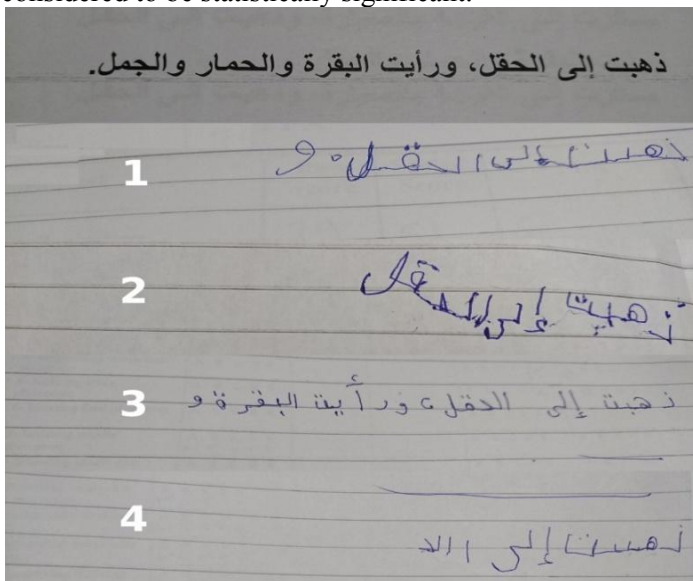 considered to be statistically significant.
ذهبت إلى الحقل، ورأيت البقرة والحمار والجمل.
1 إلى الحقل، و
2 ذهبت إلى الحقل
3 ذهبت إلى الحقل، ورأيت البقرة و
4 إلى الد